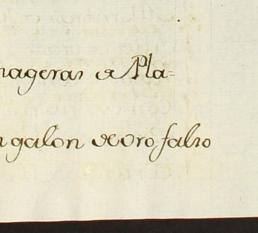 nageras de Pla=
n galon de oro falso